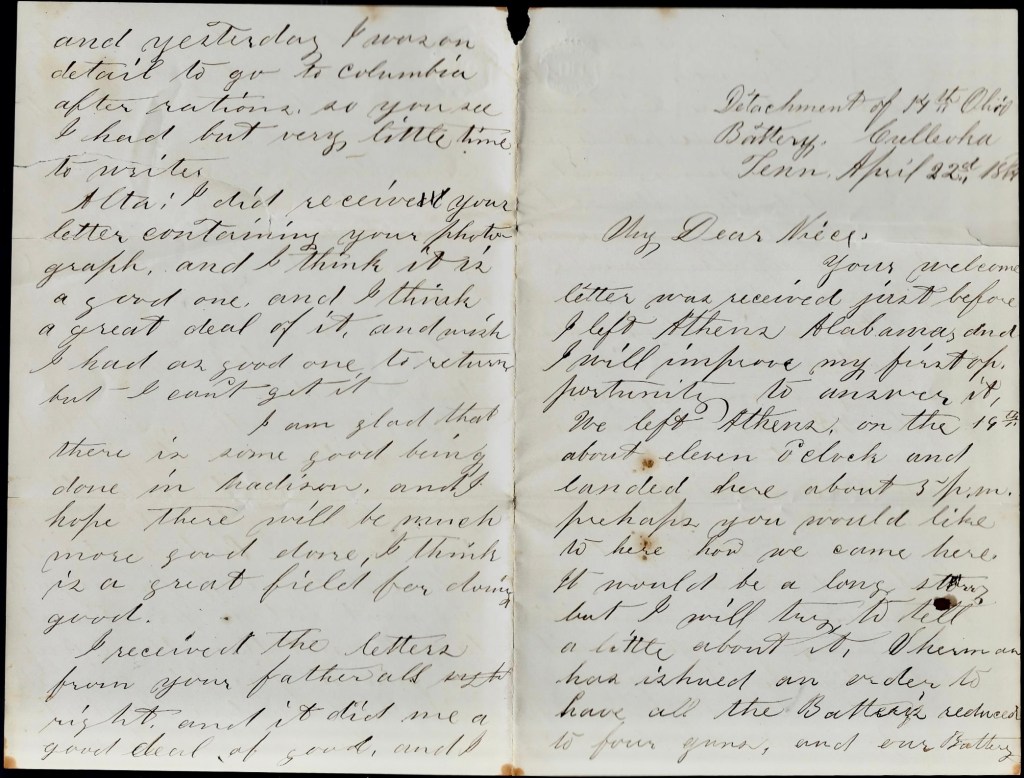 Detachment of 14th Ohio
Battery. Culleoka
Tenn. April 22nd, 1864
My Dear Niece.
Your welcome
letter was received just before
I left Athens Alabama, and
I will improve my first op.
portunity to answer it,
We left Athens, on the 19th.
about eleven O'clock and
landed here about 5 p.m.
prehaps you would like
to here how we came here.
It would be a long story
but I will try to tell
a little about it, Sherman
has ishued an order to
have all the Battery's reduced
to four guns, and our Battery
and yesterday I was on
detail to go to columbia
after rations, so you see
I had but very little time
to write.
Alta; I did received your
letter containing your photo-
graph, and I think it is
a good one, and I think
a great deal of it, and wish
I had as good one to return
but I can't get it
I am glad that
there is some good being
done in Madison, and I
hope there will be much
more good done, I think
is a great field for doing
good.
I received the letters
from your father all
right, and it did me a
good deal of good, and I